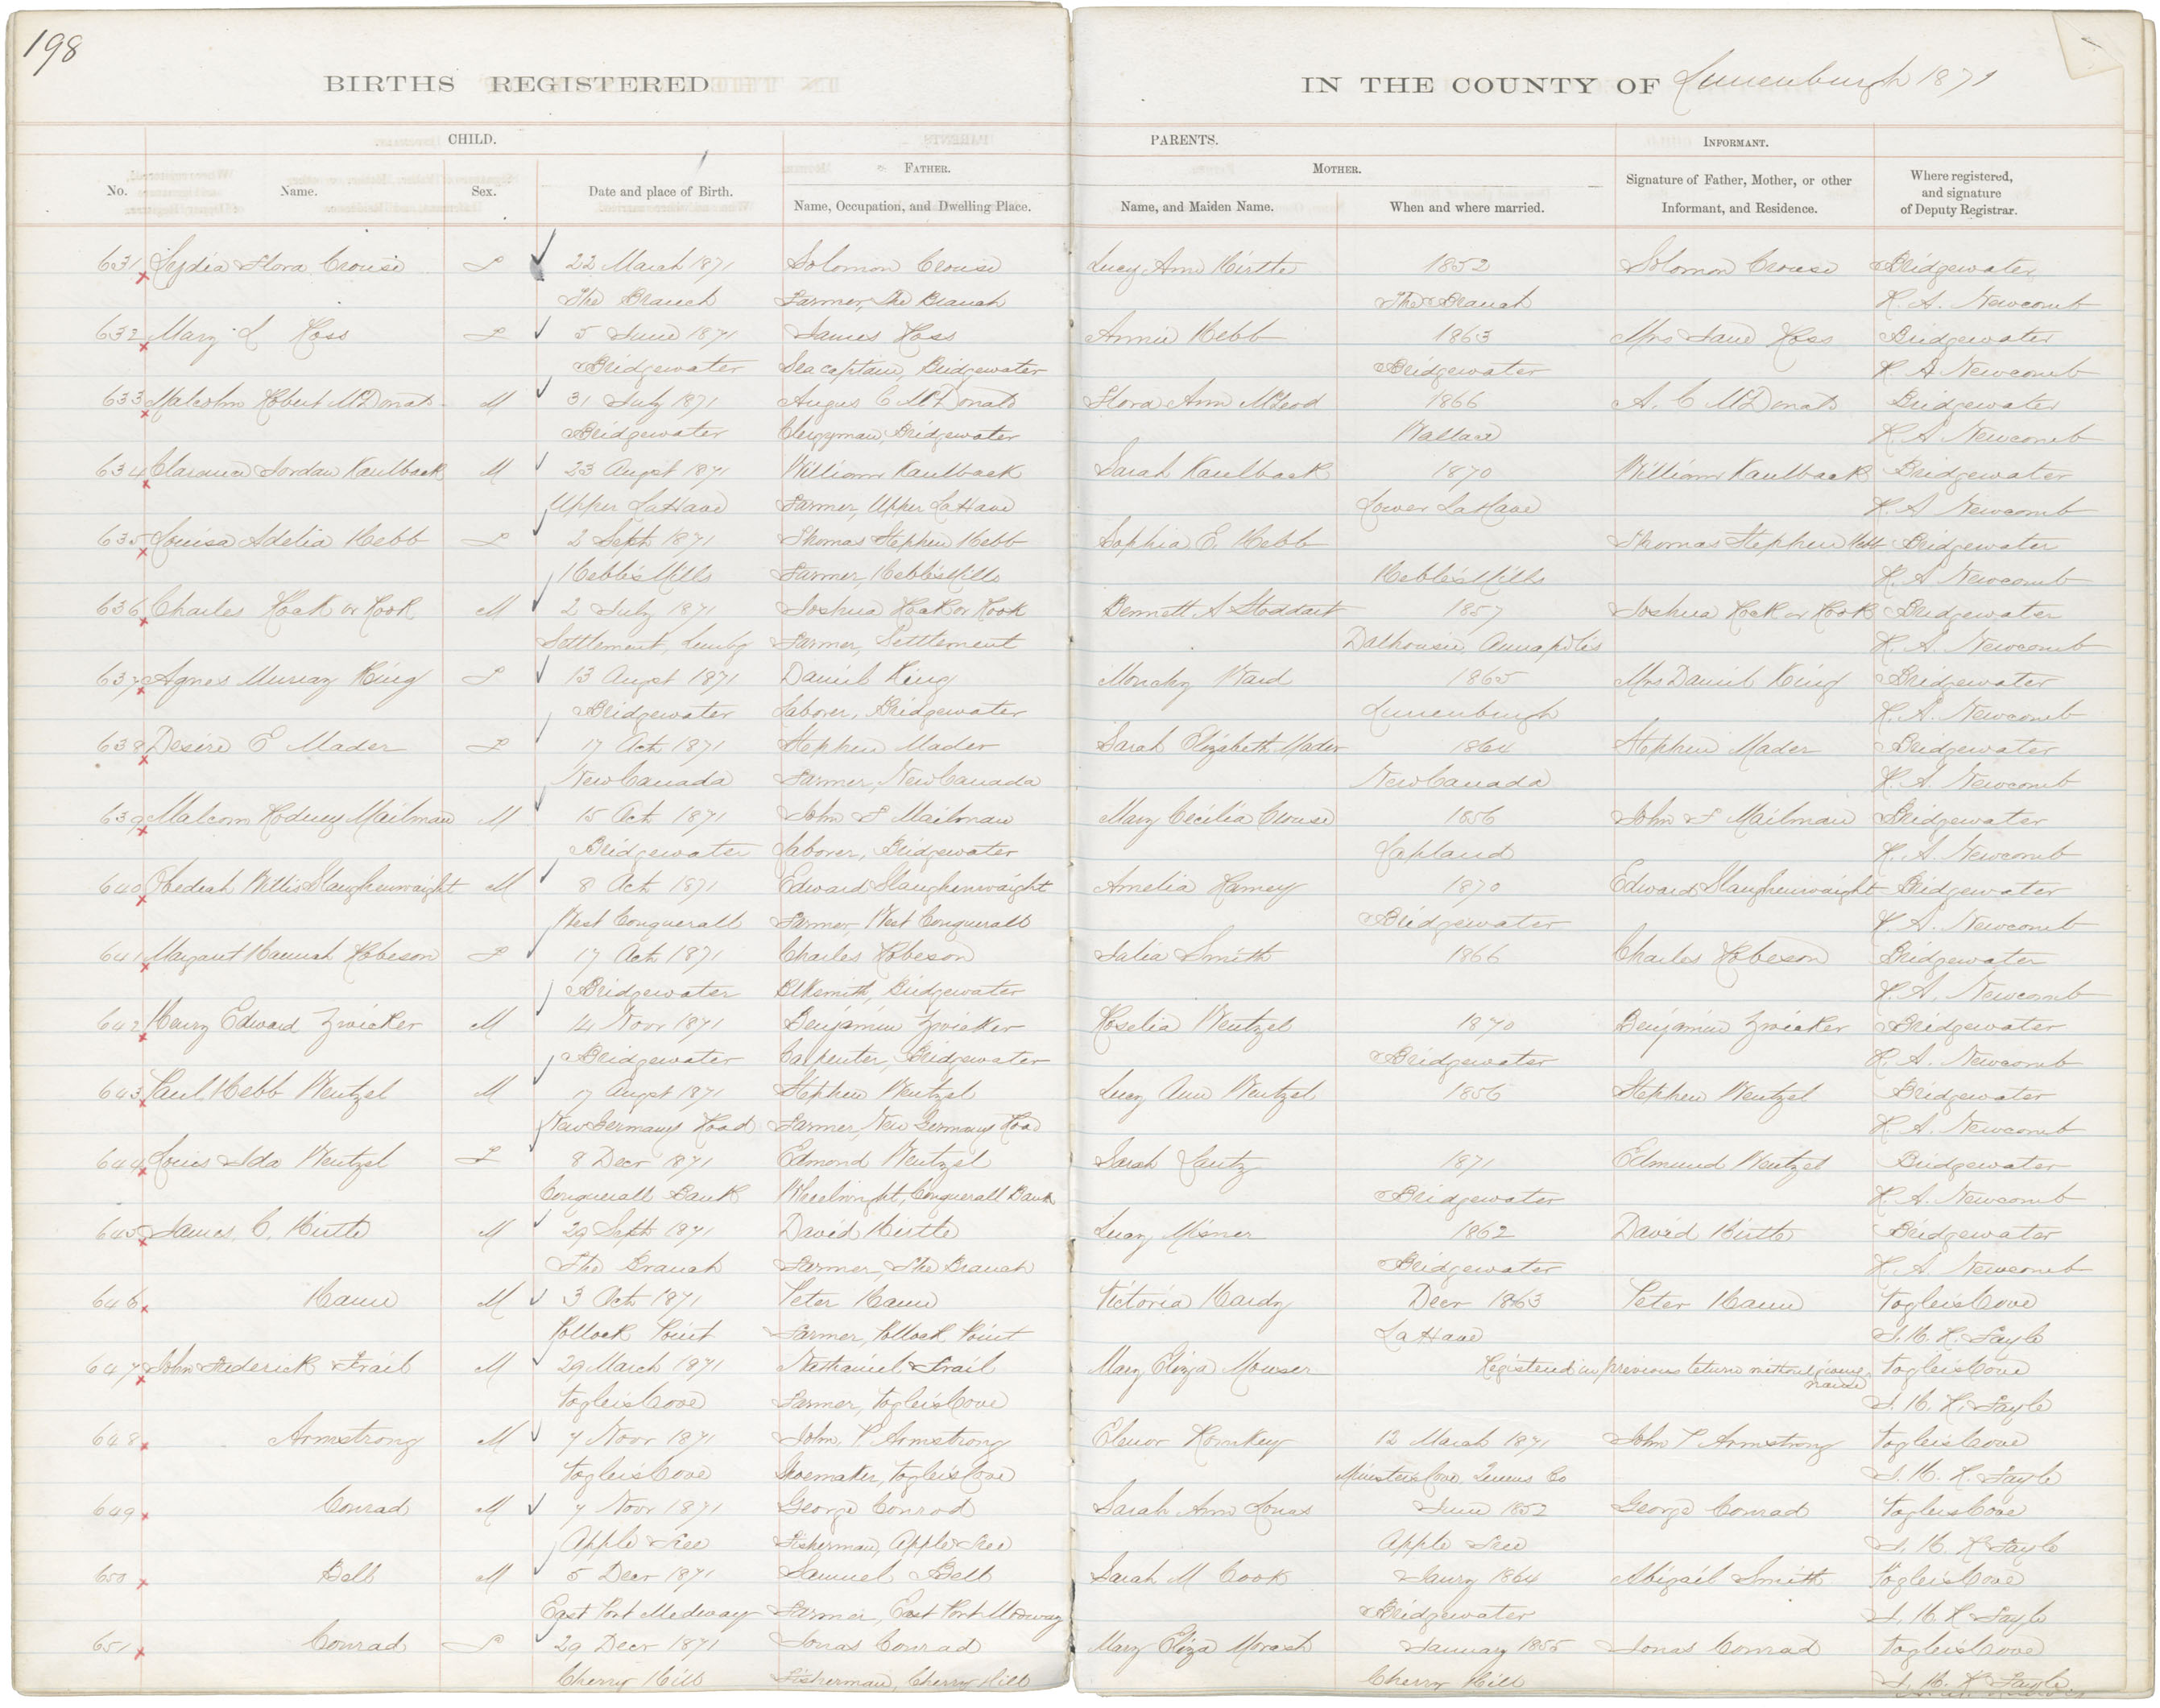 198
BIRTHS REGISTERED IN THE COUNTY OF Lunenburgh 1871
CHILD. PARENTS. INFORMANT.
No. Name. Sex. Date and place of Birth. FATHER. Name, Occupation, and Dwelling Place. MOTHER. Name, and Maiden Name. When and where married. Signature of Father, Mother, or other Informant, and Residence. Where registered, and signature of Deputy Registrar.
631 Lydia Flora Crouse F 22 March 1871 Solomon Crouse Lucy Ann Hirtle 1852 Solomon Crouse Bridgewater
The Branch Farmer, The Branch The Branch R. A. Newcomb
632 Mary L Ross F 5 June 1871 James Ross Annie Hebb 1863 Mrs Jane Ross Bridgewater
Bridgewater Sea captain, Bridgewater Bridgewater R. A Newcomb
633 Malcolm Robert McDonald M 31 July 1871 Angus C McDonald Flora Ann McLeod 1866 A. C McDonald Bridgewater
Bridgewater Clergyman, Bridgewater Wallace R. A Newcomb
634 Clarence Jordan Kaulback M 23 Augst 1871 William Kaulback Sarah Kaulback 1870 William Kaulback Bridgewater
Upper LaHave Farmer, Upper LaHave Lower LaHave R. A Newcomb
635 Louisa Adelia Hebb F 2 Sept 1871 Thomas Stephen Hebb Sophia E. Hebb Thomas Stephen Hebb Bridgewater
Hebb's Mills Farmer, Hebb's Mills Hebb's Mills R. A Newcomb
636 Charles Hoak or Rook M 2 July 1871 Joshua Hoak or Rook Bennett A Stoddart 1857 Joshua Rook or Rook Bridgewater
Settlement, Lunbg Farmer, Settlement Dalhousie Annapolis R. A. Newcomb
637 Agnes Murray King F 13 Augst 1871 Daniel King Ward 1865 Mrs Daniel King Bridgewater
Bridgewater Laborer, Bridgewater Lunenburgh R. A. Newcomb
638 Desire E Mader F 17 Oct 1871 Stephen Mader Sarah Elizabeth Mader 1864 Stephen Mader Bridgewater
New Canada Farmer, New Canada New Canada R. A. Newcomb
639 Malcom Rodney Mailman M 15 Oct 1871 John S Mailman Mary Cecilia Crouse 1856 John S Mailman Bridgewater
Bridgewater Laborer, Bridgewater Lapland R. A. Newcomb
640 Obediah Willis Slaughenwaight M 8 Oct 1871 Edward Slaughenwaight Amelia Ramey 1870 Edward Slaughenwaight Bridgewater
West Conquerall Farmer, West Conquerall Bridgewater R. A. Newcomb
641 Margaret Hannah Robeson F 17 Oct 1871 Charles Robeson Julia Smith 1866 Charles Robeson Bridgewater
Bridgewater Blksmith, Bridgewater R. A. Newcomb
642 Henry Edward Zwicker M 14 Novr 1871 Benjamin Zwicker Roselia Wentzel 1870 Benjamin Zwicker Bridgewater
Bridgewater Carpenter, Bridgewater Bridgewater R. A. Newcomb
643 Paul Hebb Wentzel M 17 Augst 1871 Stephen Wentzel Lucy Ann Wentzel 1856 Stephen Wentzel Bridgewater
New Germany Road Farmer, New Germany Road R. A. Newcomb
644 Louis Ida Wentzel F 8 Decr 1871 Edmond Wentzel Sarah Lantz 1871 Edmund Wentzel Bridgewater
Conquerall Bank Wheelwright, Conquerall Bank Bridgewater R. A. Newcomb
645 James C. Hirtle M 29 Sept 1871 David Hirtle Lucy Misner 1862 David Hirtle Bridgewater
The Branch Farmer, The Branch Bridgewater R. A. Newcomb
646 Hann M 3 Oct 1871 Peter Hann Victoria Hardy Decr 1863 Peter Hann Vogler's Cove
Pollock Point Farmer, Pollock Point LaHave J. H. R. Fayle
647 John Frederick Frail M 29 March 1871 Nathaniel Frail Mary Eliza Mouser Registered in previous return without giving name Vogler's Cove
Vogler's Cove Farmer, Vogler's Cove J. H. R. Fayle
648 Armstrong M 7 Novr 1871 John P Armstrong Elenor Romkey 12 March 1871 John P Armstrong Vogler's Cove
Vogler's Cove Shoemaker, Vogler's Cove Minsters Cove Queens Co J. H. R. Fayle
649 Conrad M 7 Novr 1871 George Conrod Sarah Ann Jonas June 1852 George Conrad Vogler's Cove
Apple Tree Fisherman, Apple Tree Apple Tree J. H. R Fayle
650 Bell M 5 Decr 1871 Samuel Bell Sarah M Cook Janry 1864 Abigail Smith Vogler's Cove
East Port Medway Farmer, East Port Medway Bridgewater J. H. R Fayle
651 Conrad F 29 Decr 1871 Jonas Conrad Mary Eliza Morash January 1855 Jonas Conrad Vogler's Cove
Cherry Hill Fisherman, Cherry Hill Cherry Hill J. H. R Fayle